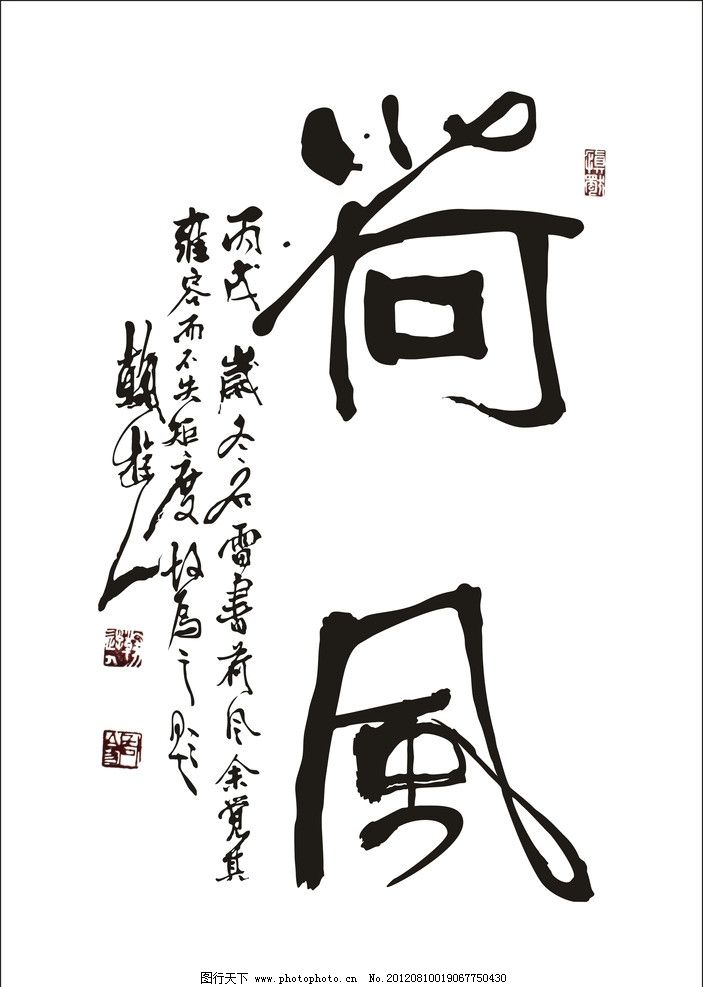 荷風
丙戌歲冬名雷書荷风余覺其
雍容而不失矩度故為之題
图行天下 www.photophoto.cn No.20120810019067750430